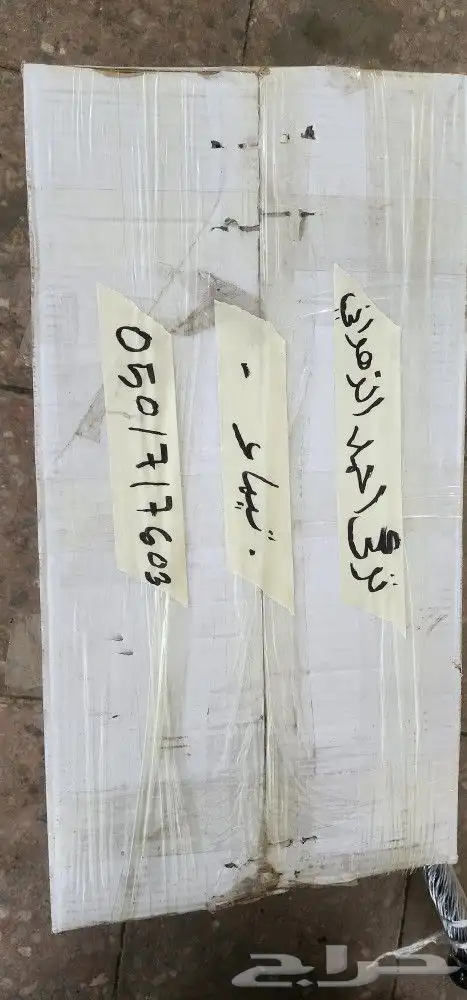 تركي احمد الزهراني
- تيماء -
0501717603
حراج